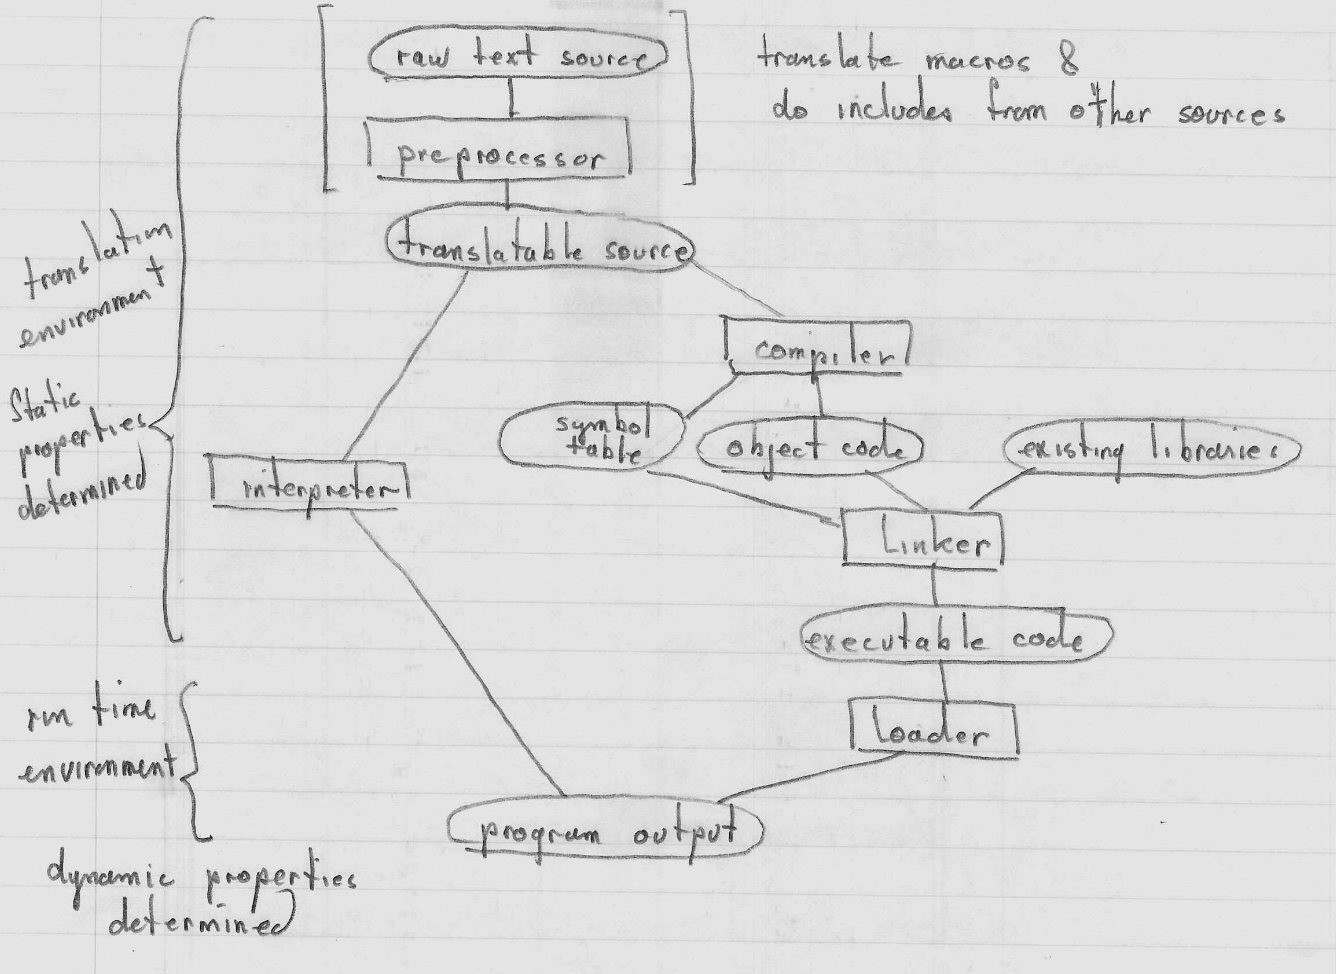 raw text source
translate macros &
do includes from other sources
preprocessor
translatable source
translation
environment
compiler
Static
properties
determined
symbol
table
object code
existing libraries
interpreter
Linker
executable code
run time
environment
Loader
program output
dynamic properties
determined